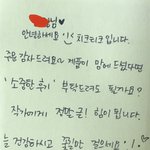 님♥
안녕하세요 치크리크 입니다.
주문 감사드려요~ 제품이 맘에 드셨다면
'소중한 후기' 부탁드려도 될까요?
작가에게 정말 큰! 힘이 됩니다.
늘 건강하시고 꽃길만 걸으세요!